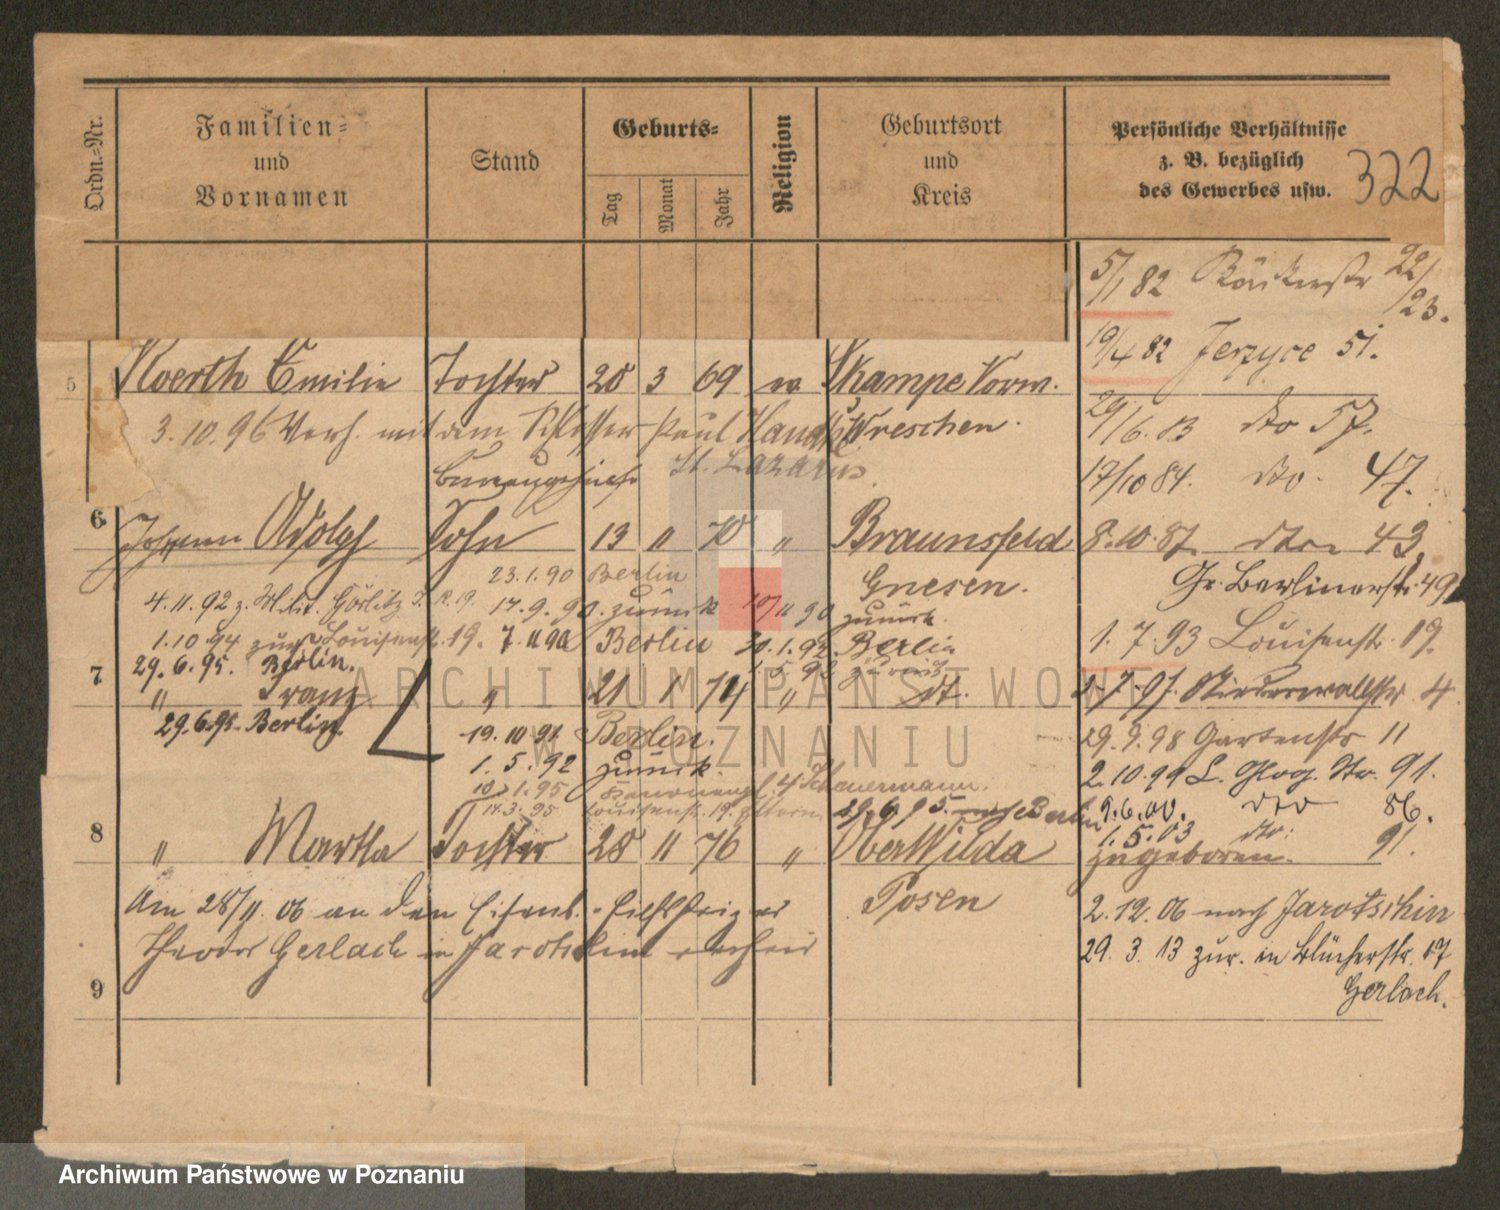 Ordn.-Nr.
Familien-
und
Vornamen
Stand
Geburts-
Tag
Monat
Jahr
Religion
Geburtsort
und
Kreis
Persönliche Verhältnisse
z. B. bezüglich
des Gewerbes usw.
322
5/1 82 Bäckerstr 22/23.
19/4 82 Jerzyce 51.
5 Koerth Emilie Tochter 20 3 69 ev Skampe Vorw.
29/6. 83 dto 57.
3. 10. 96 Verh. mit dem Schlosser Paul Wreschen.
St. Lazarus
17/10 84. dto. 47.
6 Johann Adolph Sohn 13 " 70 " Braunsfeld
8. 10. 87. dto. 43.
23. 1. 90 Berlin Gnesen.
Gr. Berlinerstr. 49
4. 11. 92 z. Milit. Görlitz I. R. 19. 17. 9. 90. zurück 10/11 90 zurück.
1. 10 94 zur Louisenst. 19. 7. 11 90 Berlin 30. 1. 92 Berlin
1. 7. 93 Louisenstr. 19.
29. 6. 95. Berlin. 1. 5 92 zurück
7 " Franz " 21 1 74 " dt.
1. 7. 97. Niederwallstr. 4.
29. 6. 95. Berlin. 19. 10 91 Berlin.
29. 9. 98 Gartenstr 11
1. 5. 92 zurück.
2. 10. 99 L. Glog. Str. 91.
10. 1. 95 4 Scheuermann.
14. 3. 95 Louisenst. 19. Eltern 29. 6. 95. nach Berlin
9. 6. 00. dto 86.
1. 5. 03 dto: 91.
8 " Martha Tochter 28 " 76 " Ober Wilda
zugeboren.
Posen
Am 28/11. 06 an den Eisenb.-Hilfsheizer
2. 12. 06 nach Jarotschin
Theodor Gerlach in Jarotschin verheir
29. 3. 13 zur. in Blücherstr. 17
Gerlach.
9
ARCHIWUM PAŃSTWOWE
W POZNANIU
Archiwum Państwowe w Poznaniu